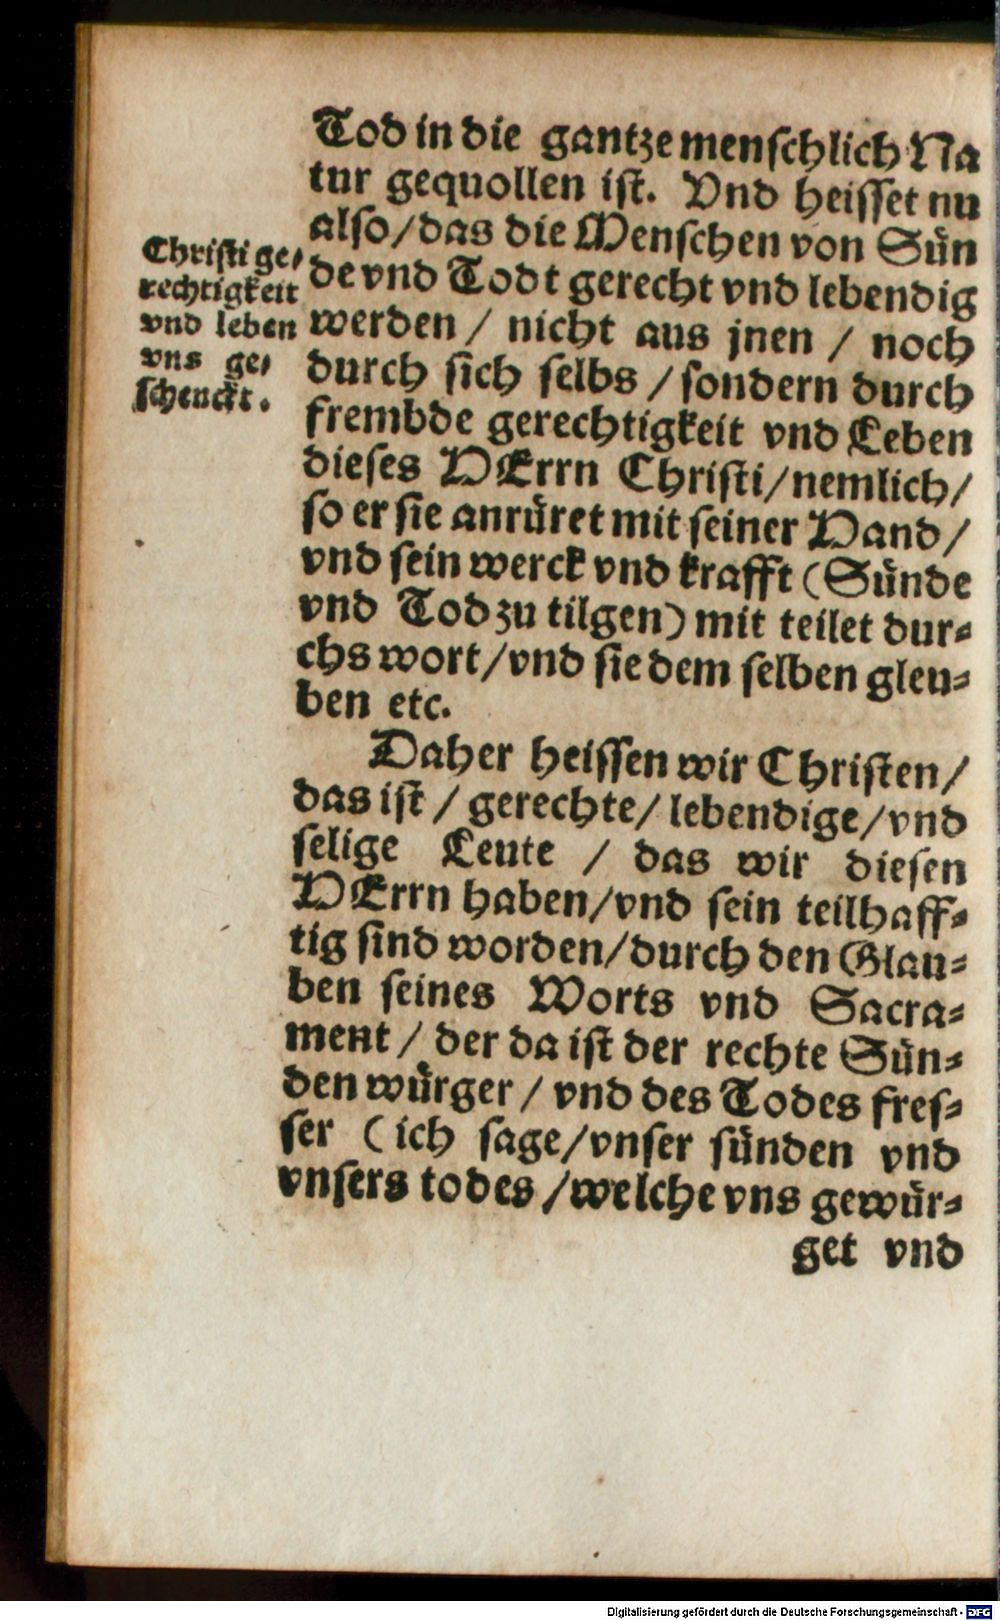 Tod in die gantze menſchlich Na
tur gequollen iſt. Vnd heiſſet nu
alſo/das die Menſchen von Sün
de vnd Todt gerecht vnd lebendig
werden / nicht aus jnen / noch
durch ſich ſelbs / ſondern durch
frembde gerechtigkeit vnd Leben
dieſes HErrn Chriſti/nemlich/
ſo er ſie anrüret mit ſeiner Hand/
vnd ſein werck vnd krafft (Sünde
vnd Tod zu tilgen) mit teilet dur⸗
chs wort/vnd ſie dem ſelben gleu⸗
ben etc.
Chriſti ge⸗
rechtigkeit
vnd leben
vns ge⸗
ſchenckt.
Daher heiſſen wir Chriſten/
das iſt / gerechte/ lebendige/vnd
ſelige Leute / das wir dieſen
HErrn haben/vnd ſein teilhaff⸗
tig ſind worden/durch den Glau⸗
ben ſeines Worts vnd Sacra⸗
ment / der da iſt der rechte Sün⸗
den würger / vnd des Todes freſ⸗
ſer (ich ſage/vnſer ſünden vnd
vnſers todes /welche vns gewür⸗
get vnd
Digitalisierung gefördert durch die Deutsche Forschungsgemeinschaft - DFG